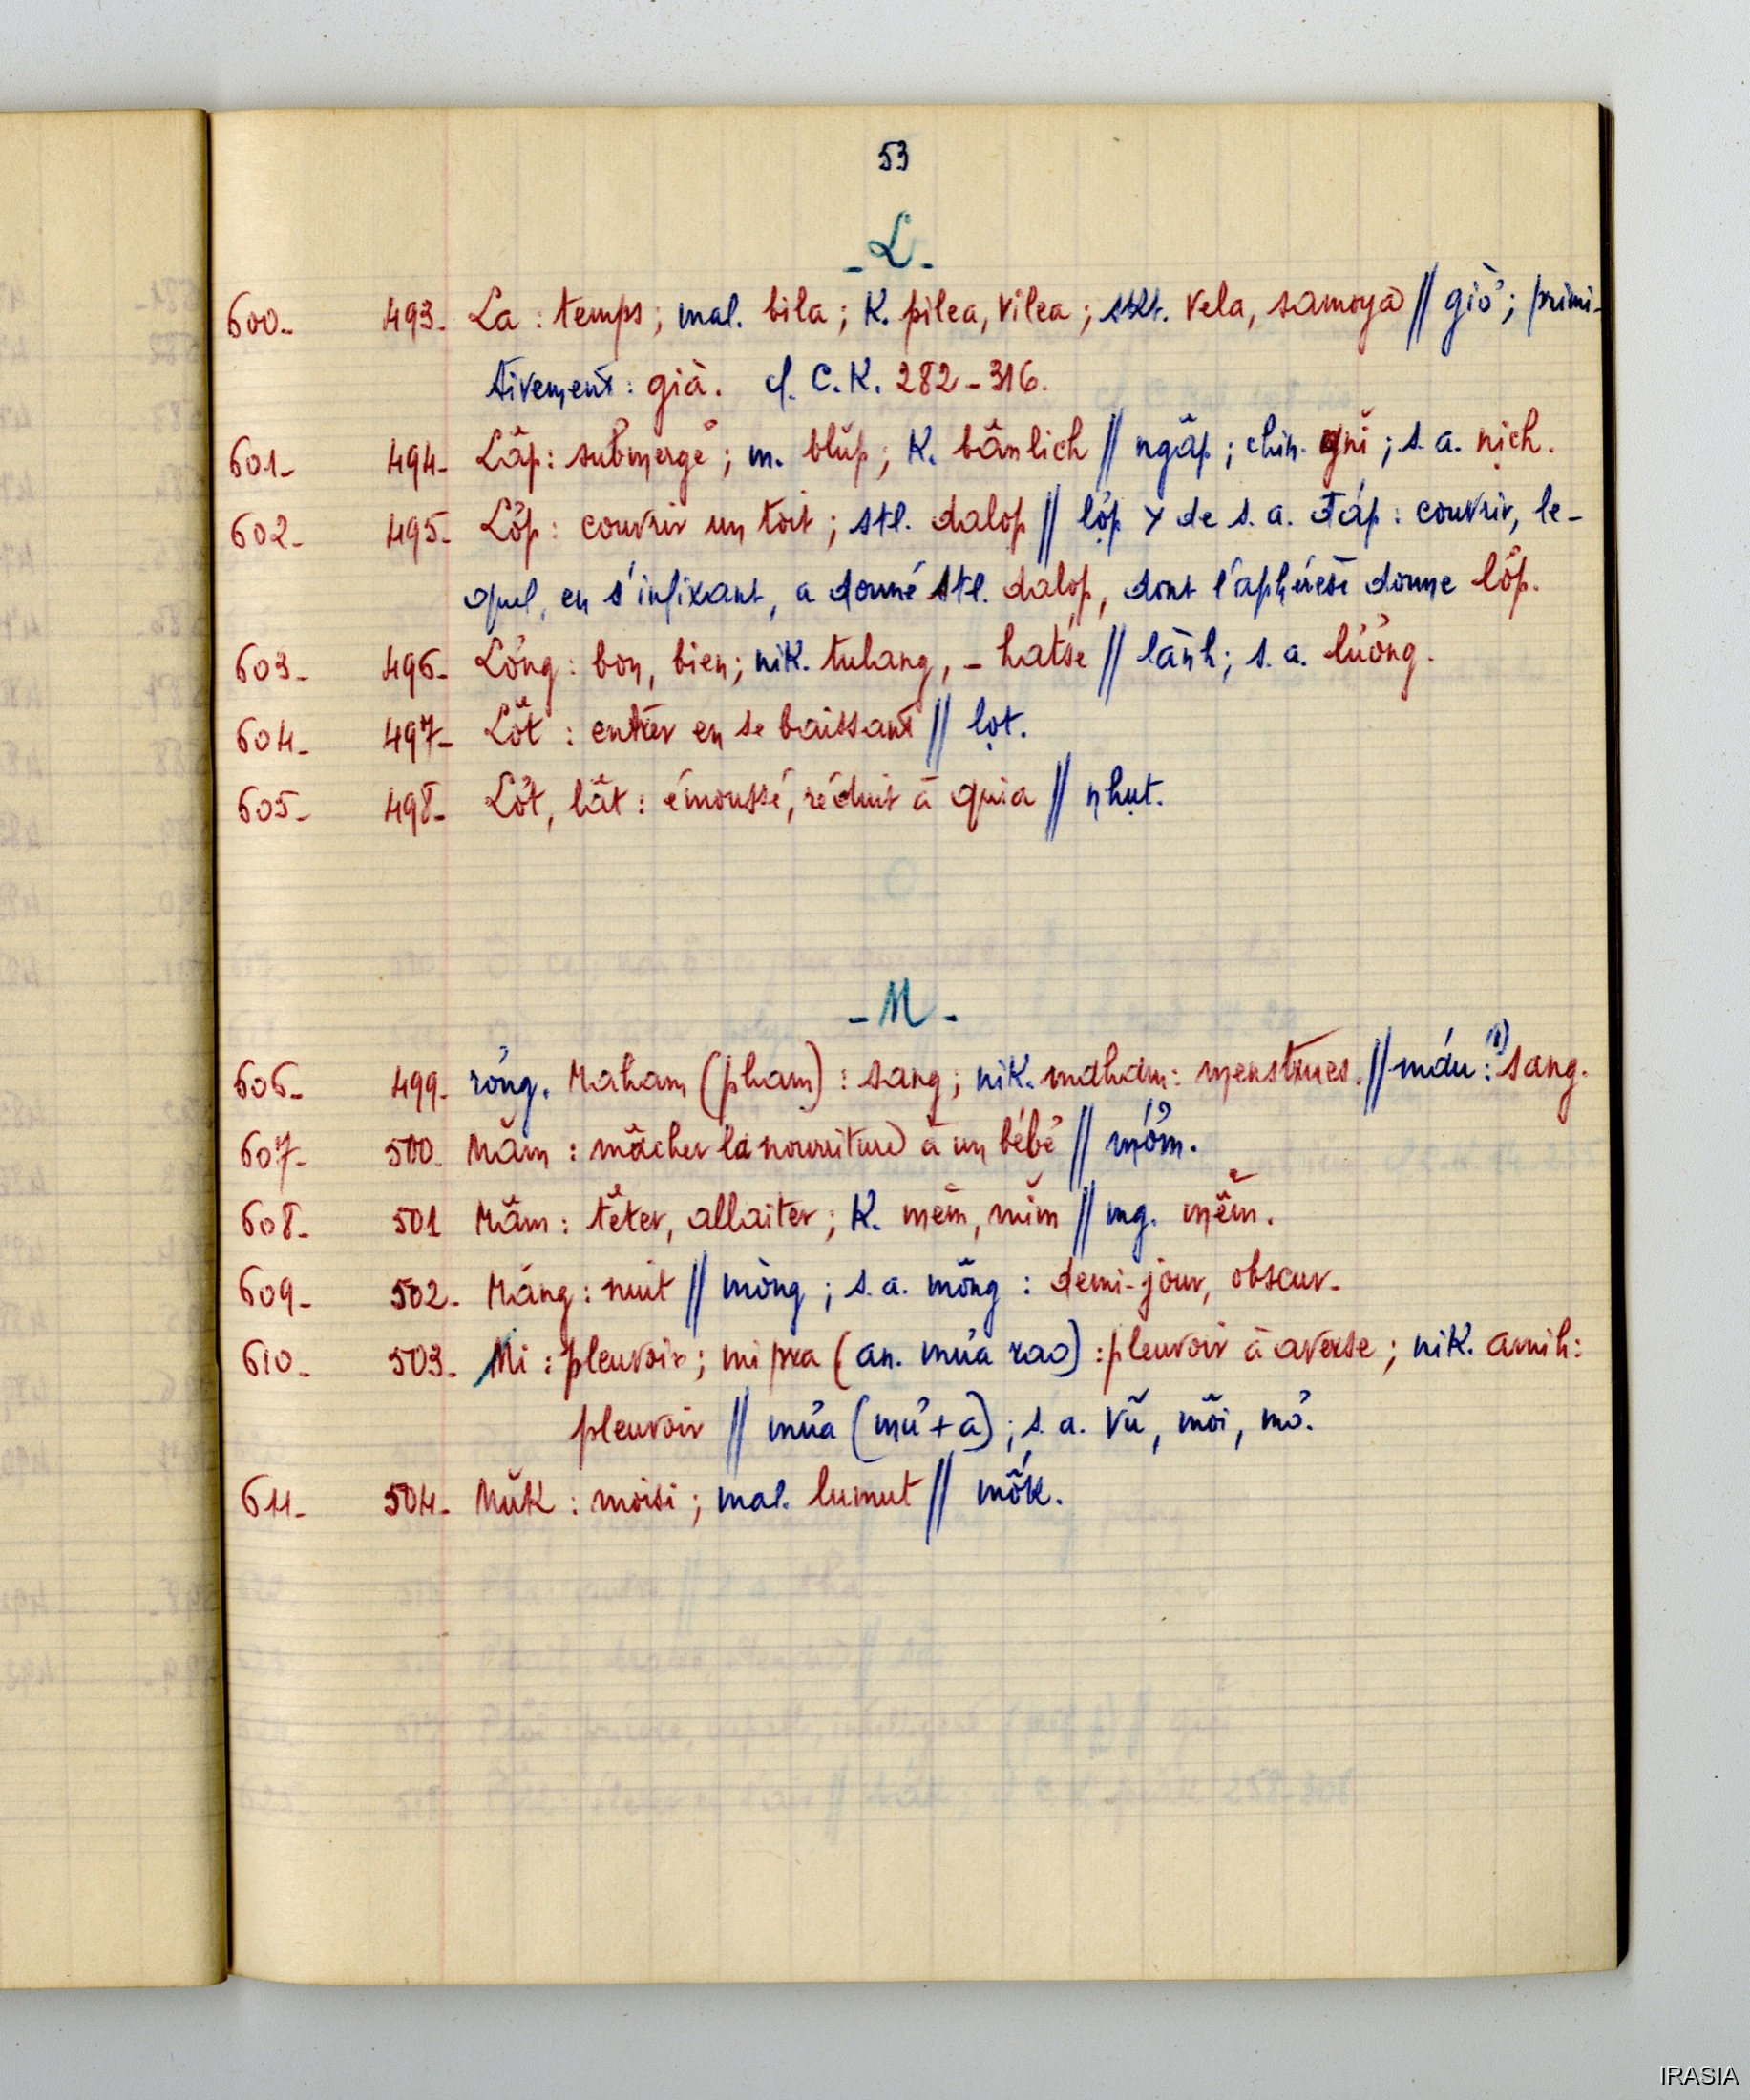 53
- L -
600- 493- La : temps ; mal. bila ; K. pilea, vilea ; skt. vela, samoya // giờ ; primi-
tivement : già. cf. C.K. 282-316.
601- 494- Lâp : submergé ; m. blŭp ; K. bânlich // ngâp ; chin. gni ; s.a. nịch.
602- 495- Lơp : couvrir un toit ; stl. dalop // lợp Y de s.a. đáp : couvrir, le-
quel, en s'infixant, a donné stl. dalop, dont l'aphérèse donne lơp.
603- 496- Lơng : bon, bien ; nik. tulang, - hatse // lành ; s.a. lương.
604- 497- Lôt : entrer en se baissant // lọt.
605- 498- Lơt, lât : émoussé, réduit à quia // nhụt.
- M -
606- 499- rơng. Maham (pham) : sang ; nik. maham : menstrues. // máu : sang.
607- 500. Măm : mâcher la nourriture à un bébé // mớm.
608- 501 Mâm : têter, allaiter ; K. mêm, mim // mg. mêm.
609- 502- Măng : nuit // mòng ; s.a. mông : demi-jour, obscur-
610- 503- Mi : pleuvoir ; mi pra (an. mưa rao) : pleuvoir à averse ; nik. amih :
pleuvoir // mưa (mư + a) ; s.a. vũ, môi, mơ.
611- 504- Mŭk : moisi ; mal. lumut // mốk.
IRASIA